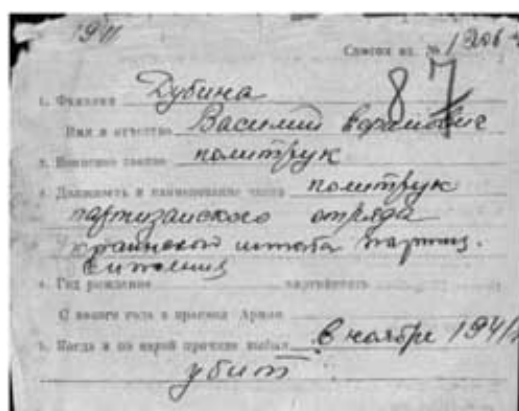 1941
Список вх. №
87
1. Фамилия Дубина
Имя и отчество Василий
политрук
Должность и наименование части политрук
партизанского отряда
Украинского штаба партиз.
Год рождения партийность
С какого года в Армии
5. Когда и по какой причине выбыл в ноябре 1941
убит